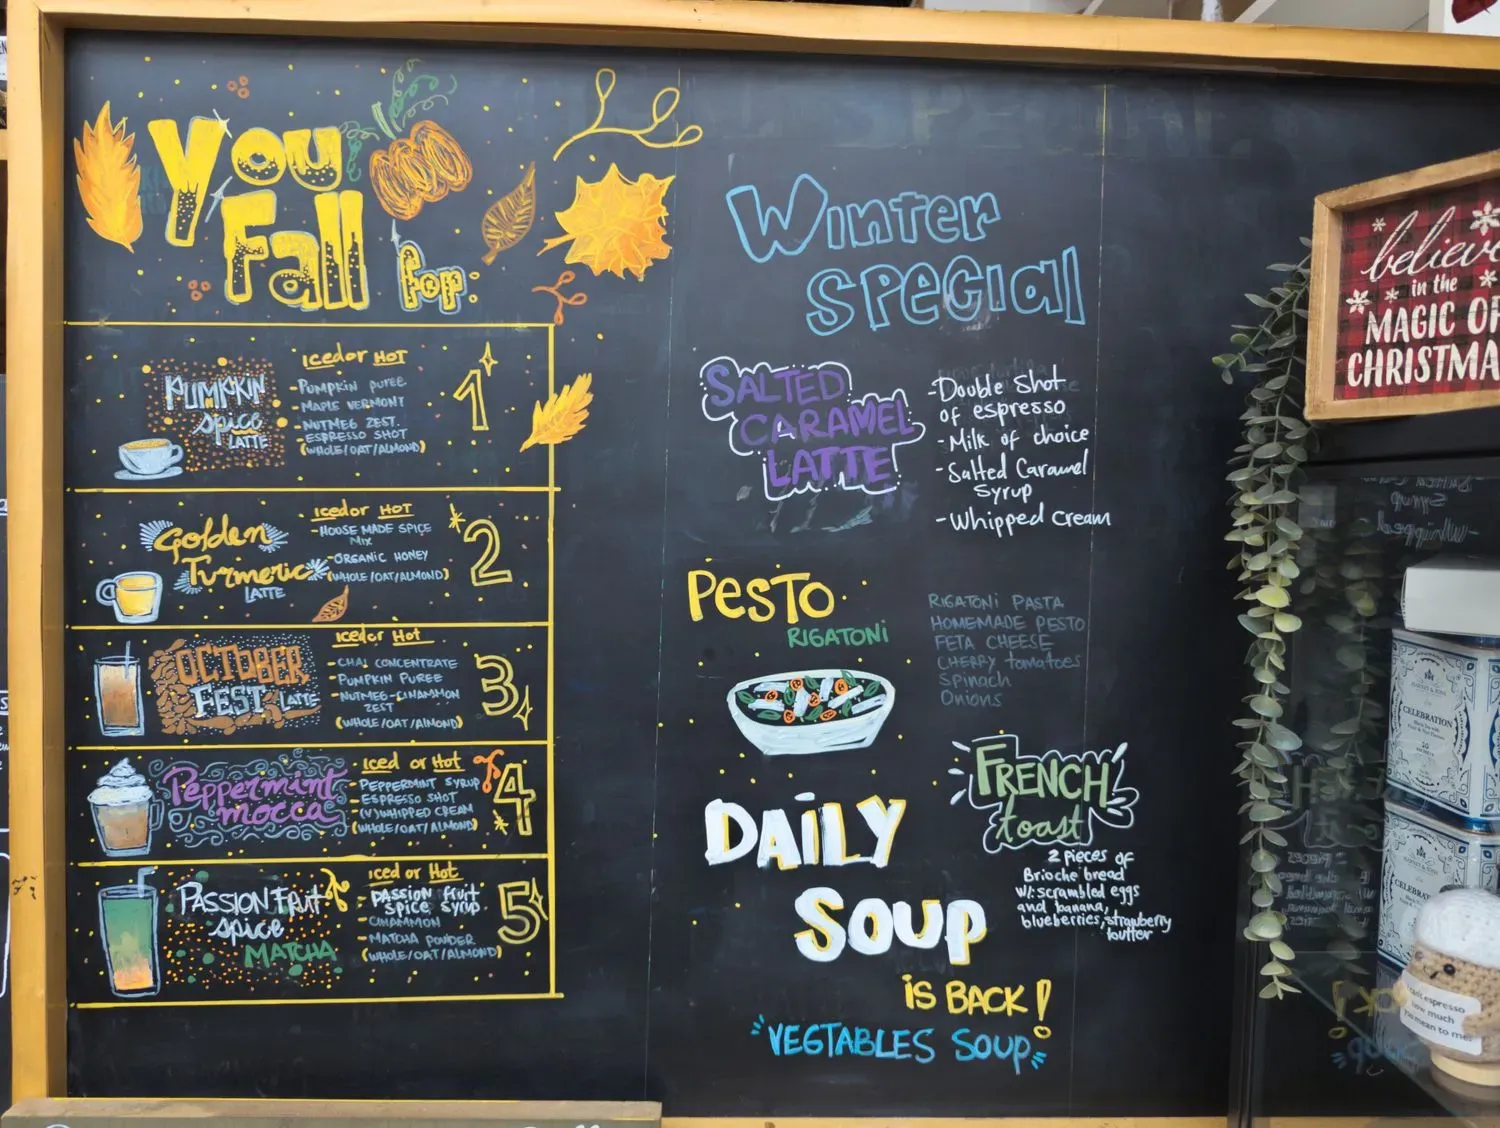 You
Fall
for:
PUMPKIN
spice
LATTE
Iced or HOT
- PUMPKIN PUREE
- MAPLE VERMONT
- NUTMEG ZEST.
- ESPRESSO SHOT
(WHOLE/OAT/ALMOND)
1
Golden
Turmeric
LATTE
Iced or HOT
- HOUSE MADE SPICE
MIX
- ORGANIC HONEY
(WHOLE/OAT/ALMOND)
2
OCTOBER
FEST LATTE
Iced or Hot
- CHAI CONCENTRATE
- PUMPKIN PUREE
- NUTMEG-CINAMMON
ZEST
(WHOLE/OAT/ALMOND)
3
Peppermint
mocca
Iced or Hot
- PEPPERMINT SYRUP
- ESPRESSO SHOT
- (V) WHIPPED CREAM
(WHOLE/OAT/ALMOND)
4
PASSION FRUIT
spice
MATCHA
Iced or Hot
- PASSION fruit
spice syrup.
CINAMMON
- MATCHA POWDER
(WHOLE/OAT/ALMOND)
5
Winter
SPECIAL
SALTED
CARAMEL
LATTE
- Double Shot
of espresso
- Milk of choice
- Salted Caramel
Syrup
- Whipped Cream
PESTO
RIGATONI
RIGATONI PASTA
HOMEMADE PESTO
FETA CHEESE
CHERRY tomatoes
Spinach
Onions
FRENCH
toast
2 pieces of
Brioche bread
W/: scrambled eggs
and banana,
blueberries, strawberry
butter
DAILY
SOUP
is BACK!
VEGTABLES SOUP
believe
in the
MAGIC OF
CHRISTMA
CELEBRATION
CELEBRA
espresso
how much
you mean to me